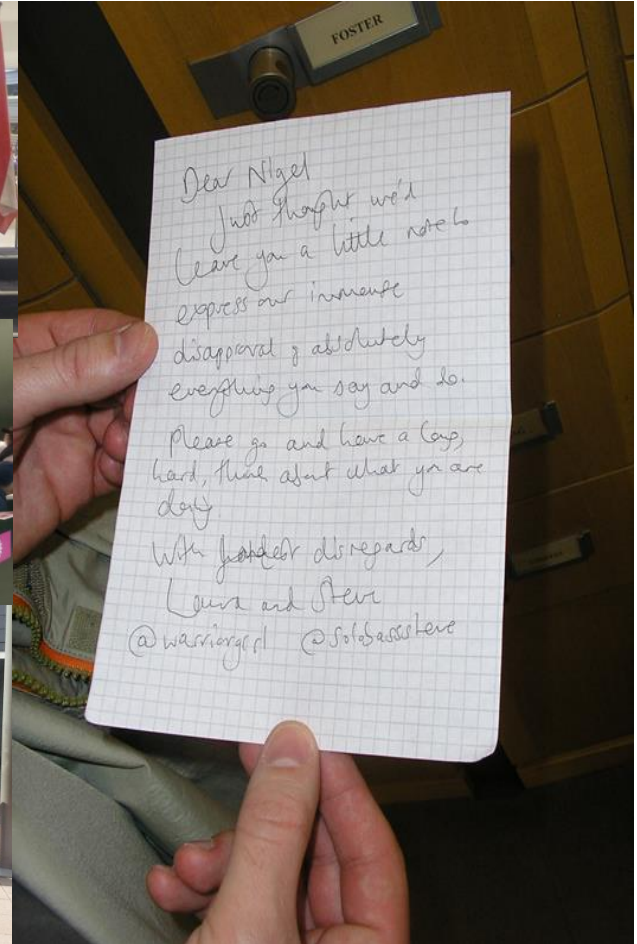 FOSTER
Dear Nigel
Just thought we'd
leave you a little note to
express our immense
disapproval of absolutely
everything you say and do.
Please go and have a long,
hard, think about what you are
doing
With fondest disregards,
Laura and Steve
@warriorgrl @solobasssteve